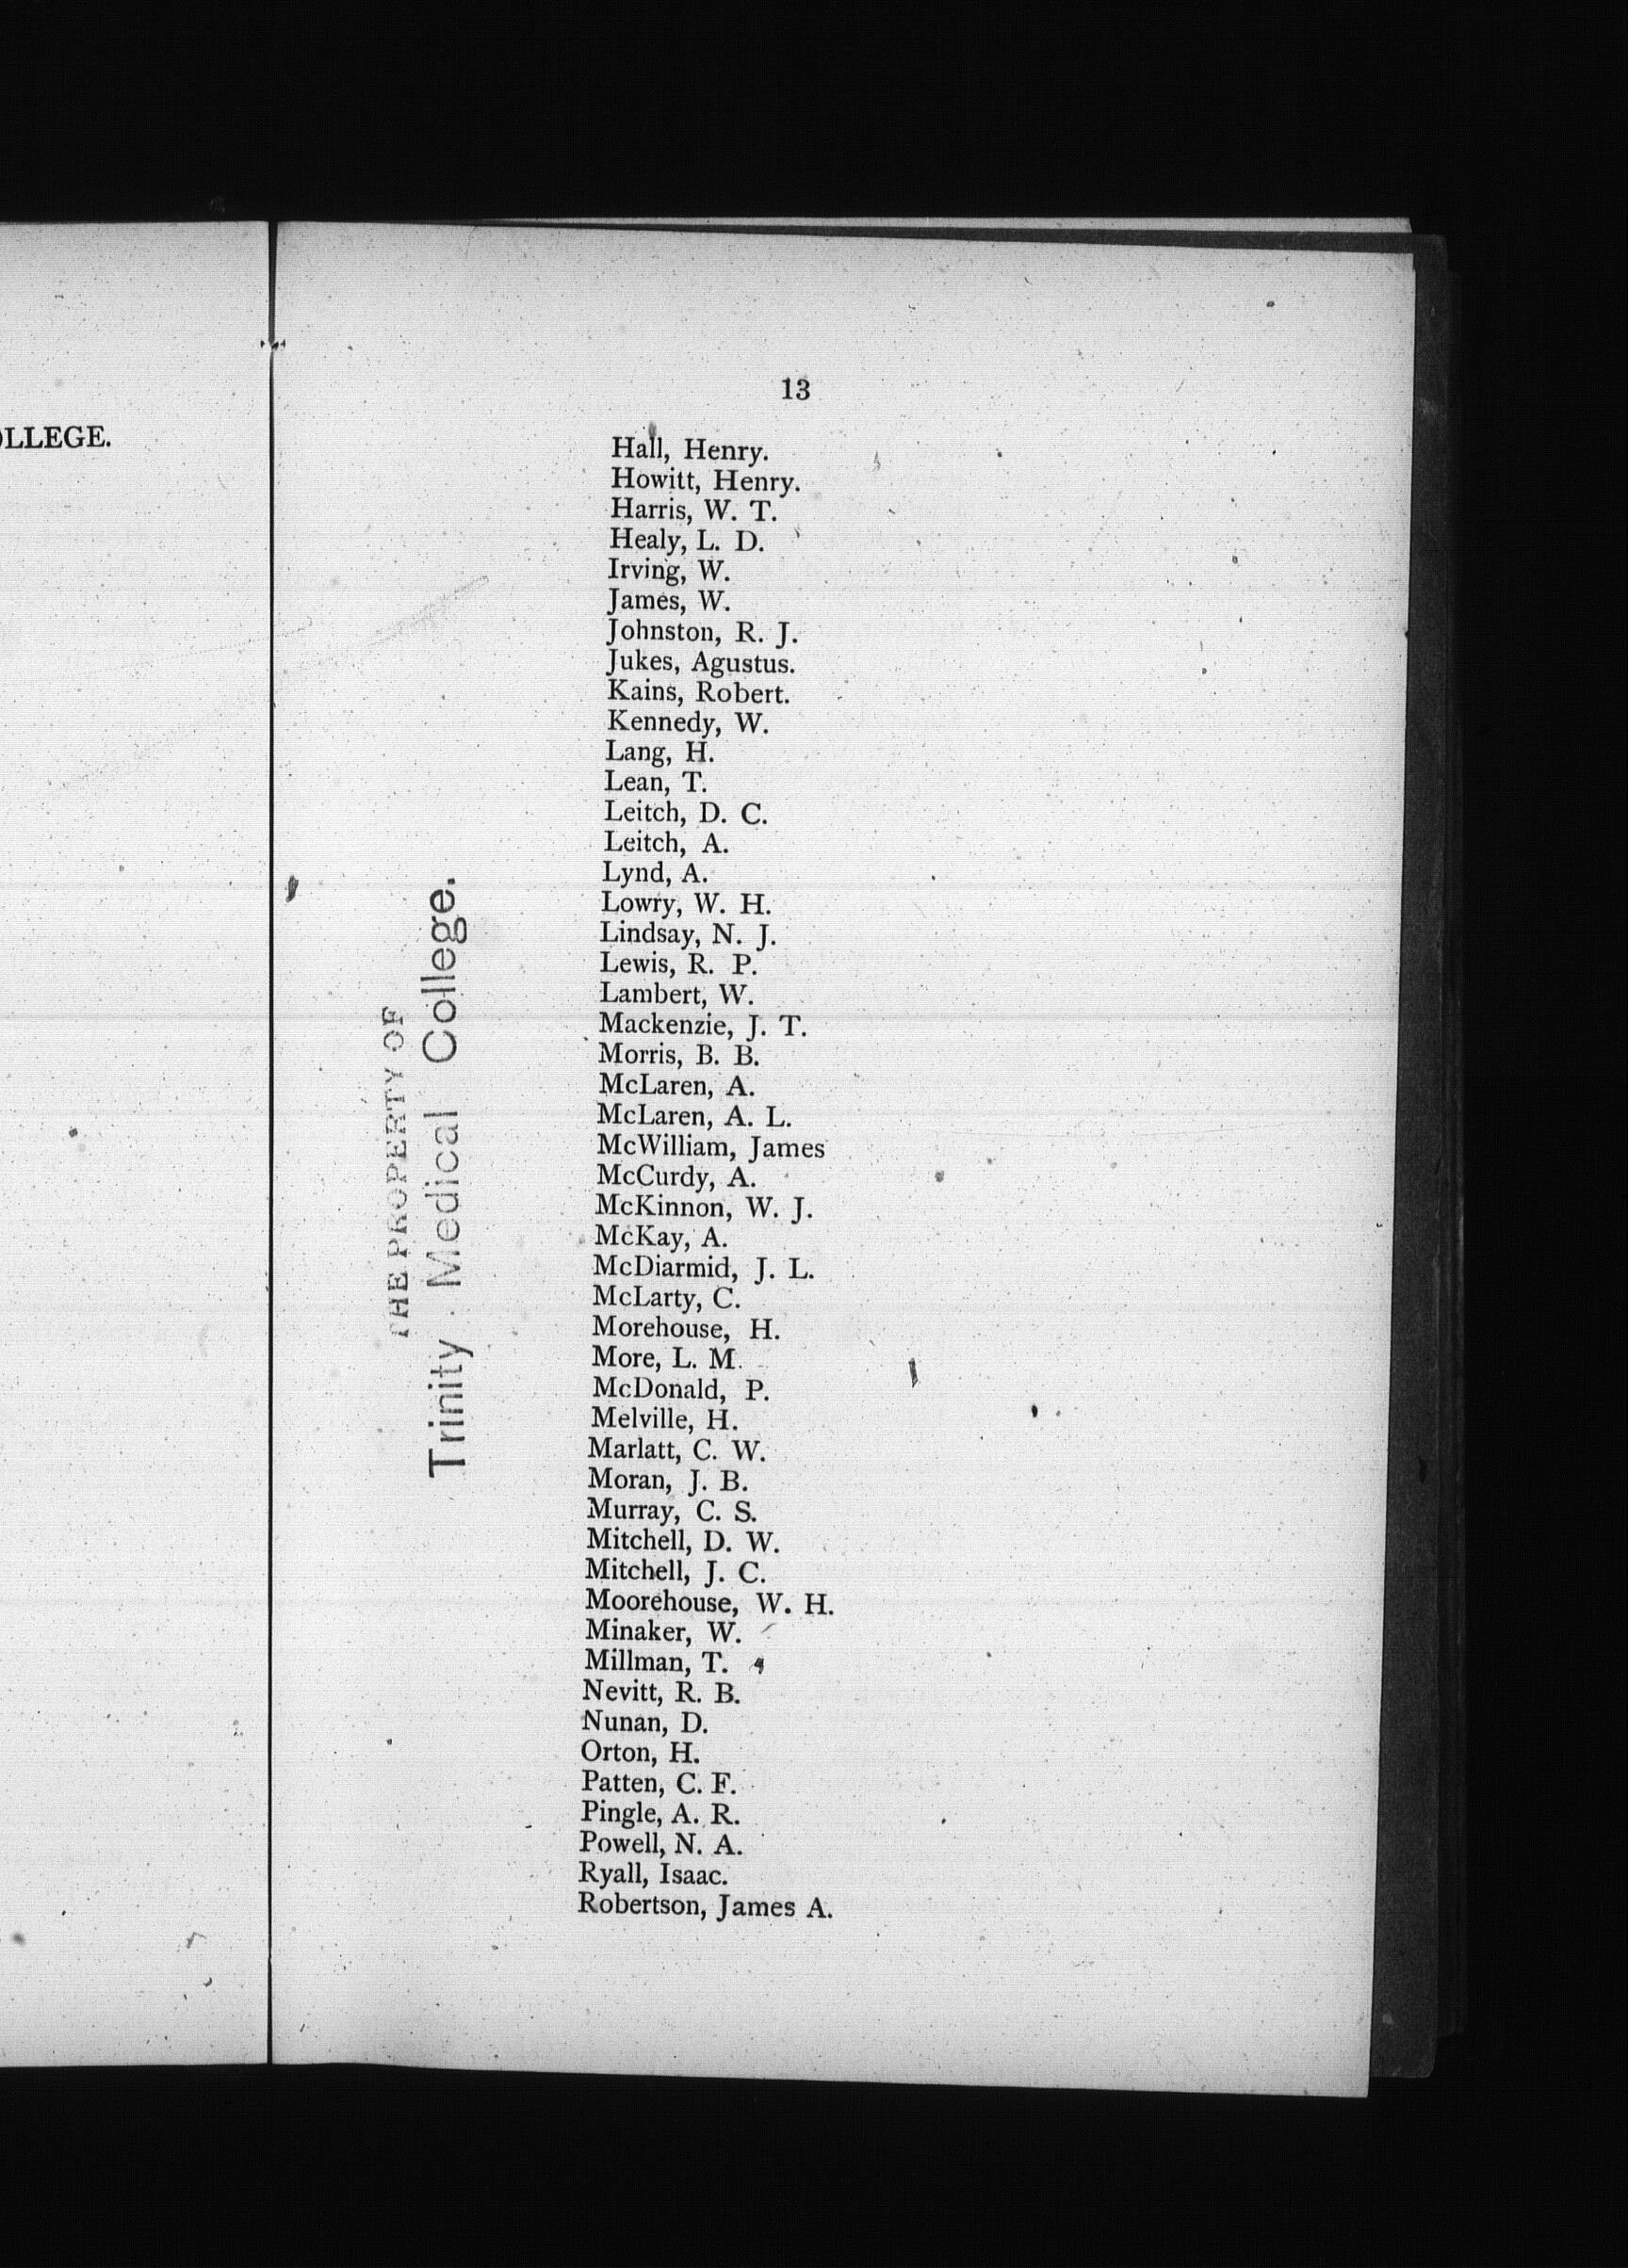 OLLEGE.
13
Hall, Henry.
Howitt, Henry.
Harris, W. T.
Healy, L. D.
Irving, W.
James, W.
Johnston, R. J.
Jukes, Agustus.
Kains, Robert.
Kennedy, W.
Lang, H.
Lean, T.
Leitch, D. C.
Leitch, A.
Lynd, A.
Lowry, W. H.
Lindsay, N. J.
Lewis, R. P.
Lambert, W.
Mackenzie, J. T.
Morris, B. B.
McLaren, A.
McLaren, A. L.
McWilliam, James
McCurdy, A.
McKinnon, W. J.
McKay, A.
McDiarmid, J. L.
McLarty, C.
Morehouse, H.
More, L. M.
McDonald, P.
Melville, H.
Marlatt, C. W.
Moran, J. B.
Murray, C. S.
Mitchell, D. W.
Mitchell, J. C.
Moorehouse, W. H.
Minaker, W.
Millman, T.
Nevitt, R. B.
Nunan, D.
Orton, H.
Patten, C. F.
Pingle, A. R.
Powell, N. A.
Ryall, Isaac.
Robertson, James A.
THE PROPERTY OF
Trinity Medical College.